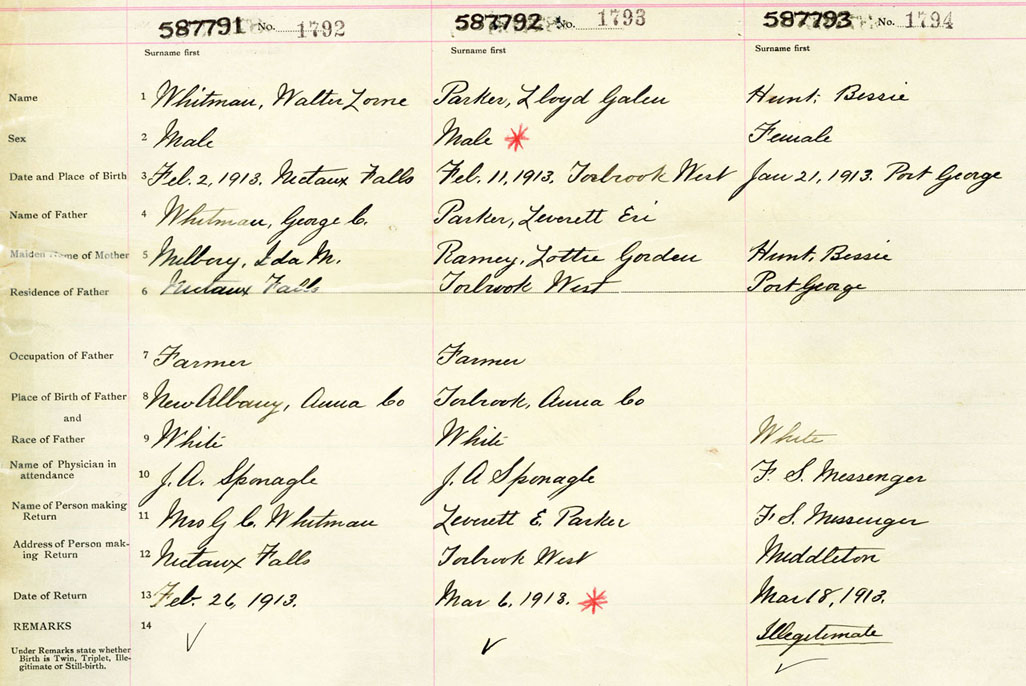 587791 No. 1792 587792 No. 1793 587793 No. 1794
Surname first Surname first Surname first
Name 1 Whitman, Walter Lorne Parker, Lloyd Galen Hunt, Bessie
Sex 2 Male Male Female
Date and Place of Birth 3 Feb. 2, 1913. Nictaux Falls Feb. 11, 1913, Torbrook West Jan 21, 1913. Port George
Name of Father 4 Whitman, George C. Parker, Leverett Eri
Maiden Name of Mother 5 Milbery, Ida M. Ramey, Lottie Gorden Hunt, Bessie
Residence of Father 6 Nictaux Falls Torbrook West Port George
Occupation of Father 7 Farmer Farmer
Place of Birth of Father 8 New Albany, Anna Co Torbrook, Anna Co
and
Race of Father 9 White White White
Name of Physician in
attendance 10 J. A. Sponagle J. A Sponagle F. S. Messenger
Name of Person making
Return 11 Mrs G C. Whitman Leverett E. Parker F. S. Messenger
Address of Person mak-
ing Return 12 Nictaux Falls Torbrook West Middleton
Date of Return 13 Feb. 26, 1913. Mar 6. 1913. Mar 18, 1913.
REMARKS 14 Illegitimate
Under Remarks state whether
Birth is Twin, Triplet, Ille-
gitimate or Still-birth.